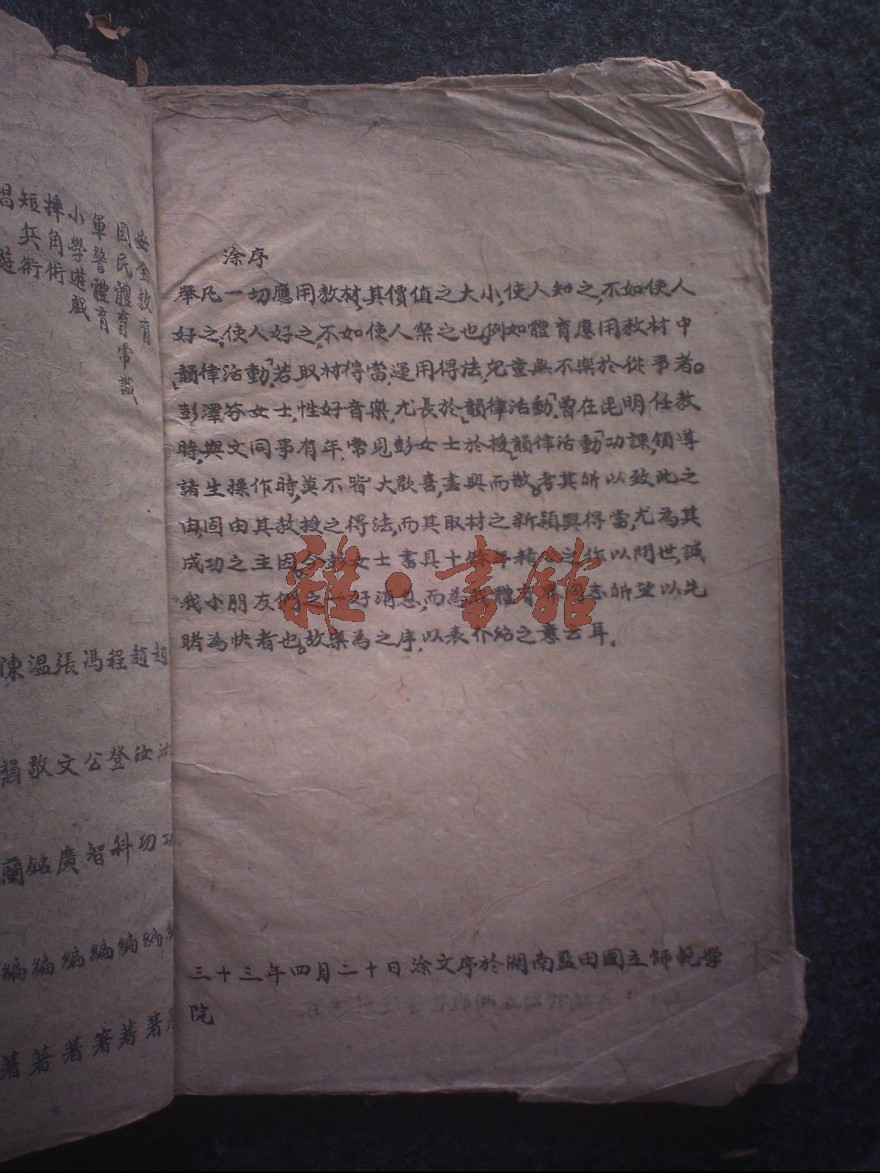 涂序
舉凡一切應用教材,其價值之大小,使人知之,不如使人
好之,使人好之,不如使人樂之也,例如體育應用教材中
「韻律活動」,若取材得當,運用得法,兒童無不樂於從事者。
彭澤芬女士,性好音樂,尤長於「韻律活動」,曾在昆明任教
時,與文同事有年,常見彭女士於授「韻律活動」功課,領導
諸生操作時,莫不皆大歡喜,盡興而散。考其所以致此之
由,固由其教授之得法,而其取材之新穎與得當,尤為其
成功之主因,今彭女士書其十餘年精心之作以問世,誠
我小朋友們之一好消息,而為我體育界同志所望以先
睹為快者也。故樂為之序,以表介紹之意云耳。
三十三年四月二十日涂文序於湖南藍田國立師範學
院
雅·書館
安全教育
國民體育常識
軍警體育
小學遊戲
摔角術
短兵術
趙
趙汝功編著
程登科編著
馮公智編著
張文廣編著
溫敬銘編著
陳 蘭編著